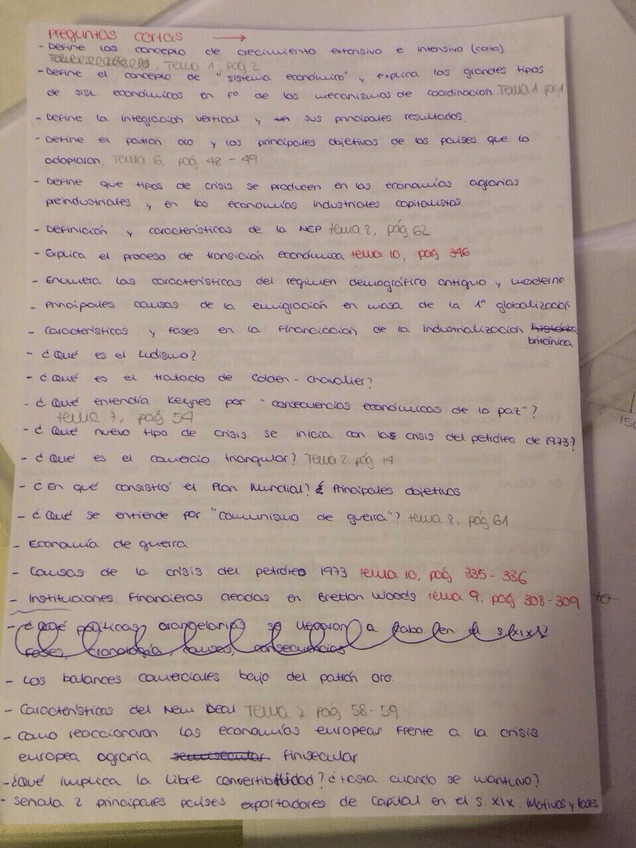 Preguntas cortas →
- Define los concepto de crecimiento extensivo e intensivo (corta)
Tema 1, pág 2
- Define el concepto de "sistema económico" y explica los grandes tipos
de sist. económicos en fº de los mecanismos de coordinación Tema 1 pág 1
- Define la integración vertical y sus principales resultados.
- Define el patrón oro y los principales objetivos de los países que lo
adoptaron. Tema 6, pág 48-49
- Define que tipos de crisis se producen en las economías agrarias
preindustriales y en las economías industriales capitalistas.
- Definición y características de la NEP tema 8, pág 62
- Explica el proceso de transición económica tema 10, pág 346
- Enumera las características del regimen demográfico antiguo y moderno
- Principales causas de la emigración en masa de la 1ª globalización
- Características y fases en la financiación de la industrialización
británica
- ¿Qué es el ludismo?
- ¿Qué es el tratado de Colden-Chavalier?
- ¿Qué entendía Keynes por "consecuencias económicas de la paz"?
tema 7, pág 54
- ¿Qué nuevo tipo de crisis se inicia con las crisis del petróleo de 1973?
- ¿Qué es el comercio triangular? Tema 2 pág 14
- ¿En qué consistió el Plan Mundial? Principales objetivos
- ¿Qué se entiende por "comunismo de guerra"? tema 8, pág 61
- Economía de guerra
- Causas de la crisis del petróleo 1973 tema 10, pág 335-336
- Instituciones financieras creadas en Bretton Woods tema 9, pág 308-309
- ¿Qué políticas arancelarias se llevaron a cabo en el s XIX?
Fases, cronología, causas, consecuencias
- Los balances comerciales bajo del patrón oro.
- Características del New Deal Tema 7 pág 58-59
- Como reaccionaron las economías europeas frente a la crisis
europea agraria finisecular
- ¿Qué implica la libre convertibilidad? ¿Hasta cuando se mantuvo?
- Señala 2 principales países exportadores de capital en el s. XIX. Motivos y fases